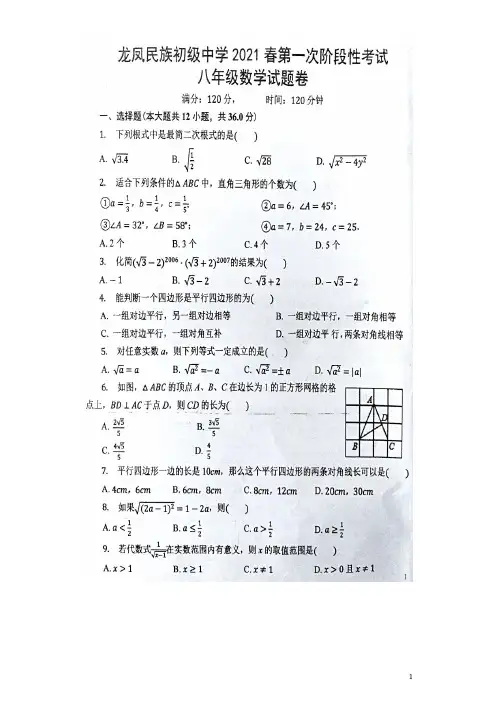 龙凤民族初级中学2021春第一次阶段性考试
八年级数学试题卷
满分：120分， 时间：120分钟
一、选择题(本大题共12小题，共36.0分)
1. 下列根式中是最简二次根式的是( )
A. √3.4 B. √(1/2) C. √28 D. √(x²−4y²)
2. 适合下列条件的△ABC中，直角三角形的个数为( )
①a=1/3，b=1/4，c=1/5； ②a=6，∠A=45°；
③∠A=32°，∠B=58°； ④a=7，b=24，c=25．
A. 2个 B. 3个 C. 4个 D. 5个
3. 化简(√3−2)²⁰⁰⁶·(√3+2)²⁰⁰⁷的结果为( )
A. −1 B. √3−2 C. √3+2 D. −√3−2
4. 能判断一个四边形是平行四边形的为( )
A. 一组对边平行，另一组对边相等 B. 一组对边平行，一组对角相等
C. 一组对边平行，一组对角互补 D. 一组对边平行，两条对角线相等
5. 对任意实数a，则下列等式一定成立的是( )
A. √a=a B. √a²=−a C. √a²=±a D. √a²=|a|
6. 如图，△ABC的顶点A、B、C在边长为1的正方形网格的格
点上，BD⊥AC于点D，则CD的长为( )
A. 2√5/5 B. 3√5/5
C. 4√5/5 D. 4/5
A
D
B C
7. 平行四边形一边的长是10cm，那么这个平行四边形的两条对角线长可以是( )
A. 4cm，6cm B. 6cm，8cm C. 8cm，12cm D. 20cm，30cm
8. 如果√((2a−1)²)=1−2a，则( )
A. a<1/2 B. a≤1/2 C. a>1/2 D. a≥1/2
9. 若代数式1/√(x−1)在实数范围内有意义，则x的取值范围是( )
A. x>1 B. x≥1 C. x≠1 D. x>0且x≠1
1
1